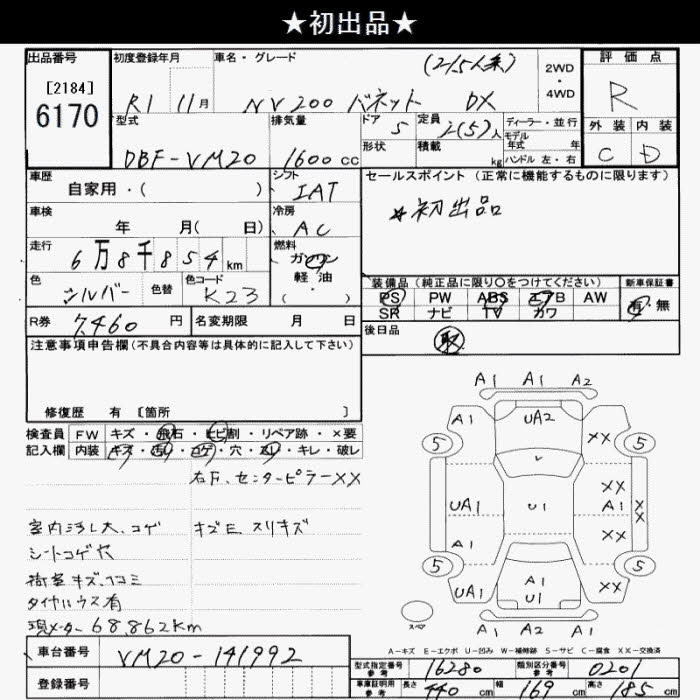 ★初出品★
出品番号 初度登録年月 車名・グレード (2/5人乗) 2WD・4WD 評価点
[2184]
6170 R1 11月 NV200 バネット DX R
型式 排気量 ドア 5 定員 2(5)人 ディーラー・並行 外装 内装
DBF-VM20 1600cc 形状 積載 kg モデル年式 年 C D
ハンドル 左・右
車歴 シフト セールスポイント (正常に機能するものに限ります)
自家用・( ) IAT ☆初出品
車検 冷房
年 月( 日) AC
走行 燃料
6万8千854km ガソリン
色 色替 色コード 軽油
シルバー K23 ( ・ )
装備品 (純正品に限り○をつけてください) 新車保証書
PS PW ABS エアB AW 有・無
SR ナビ TV カワ
R券 7,460円 名変期限 月 日 後日品 取
注意事項申告欄(不具合内容等は具体的に記入して下さい)
修復歴 有 [箇所 ]
検査員 FW キズ・飛石・ヒビ割・リペア跡・×要
記入欄 内装 キズ・汚れ・コゲ・穴・スレ・キレ・破レ
右F、センターピラーXX
室内汚れ大、コゲ キズE スリキズ
シートコゲ穴
荷室キズ、凹ミ
タイヤハウス有
現メーター 68,862km
A1 A1 A2
A1 UA2 XX
5 5
XX
UA1 U1 A1 XX
A1 XX
5 A1 5
UA1 U1 XX
スペア A1 A2 A1
A-キズ E-エクボ U-凹み W-補修跡 S-サビ C-腐食 XX-交換済
車台番号 VM20-141992
登録番号
型式指定番号 参考 16280 類別区分番号 参考 0201
車庫証明用 参考 長さ 440cm 幅 169cm 高さ 185cm